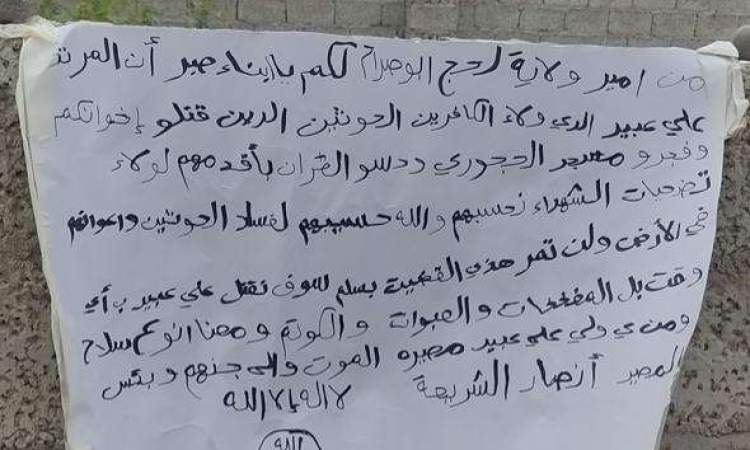 من امير ولاية لحج ابو صدام لكم يا ابناء صبر أن المرتد
علي عبيد الذي ولاء الكافرين الحوثين الذين قتلو إخوانكم
وفجرو مسجد الحجوري ودسو القران بأقدمهم لولاء
تضحيات الشهداء نحسبهم والله حسيبهم لفساد الحوثين واعوانهم
في الأرض ولن تمر هذي القضية بسلم لسوف نقتل علي عبيد ب أي
وقت بل المفخخات والعبوات والكوتم ومعنا انوع سلاح
ومن ي ولي علي عبيد مصيره الموت والى جنهم وبئس
المصير أنصار الشريعة لا اله إلا الله
الله